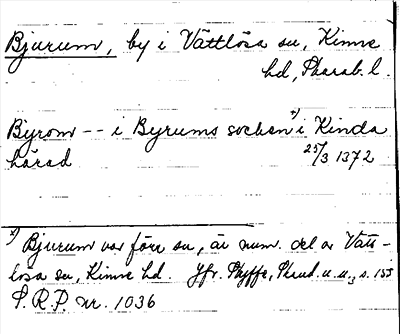 Bjurum, by i Vättlösa sn, Kinne
hd, Skarab. l.
Byrom -- i Byrums sochen x) i Kinda
härad 25/3 1372
x) Bjurum var förr sn, är num. del av Vätt-
lösa sn, Kinne hd. Jfr. Styffe, Skand. u. u., s. 155
S.R.P. nr. 1036